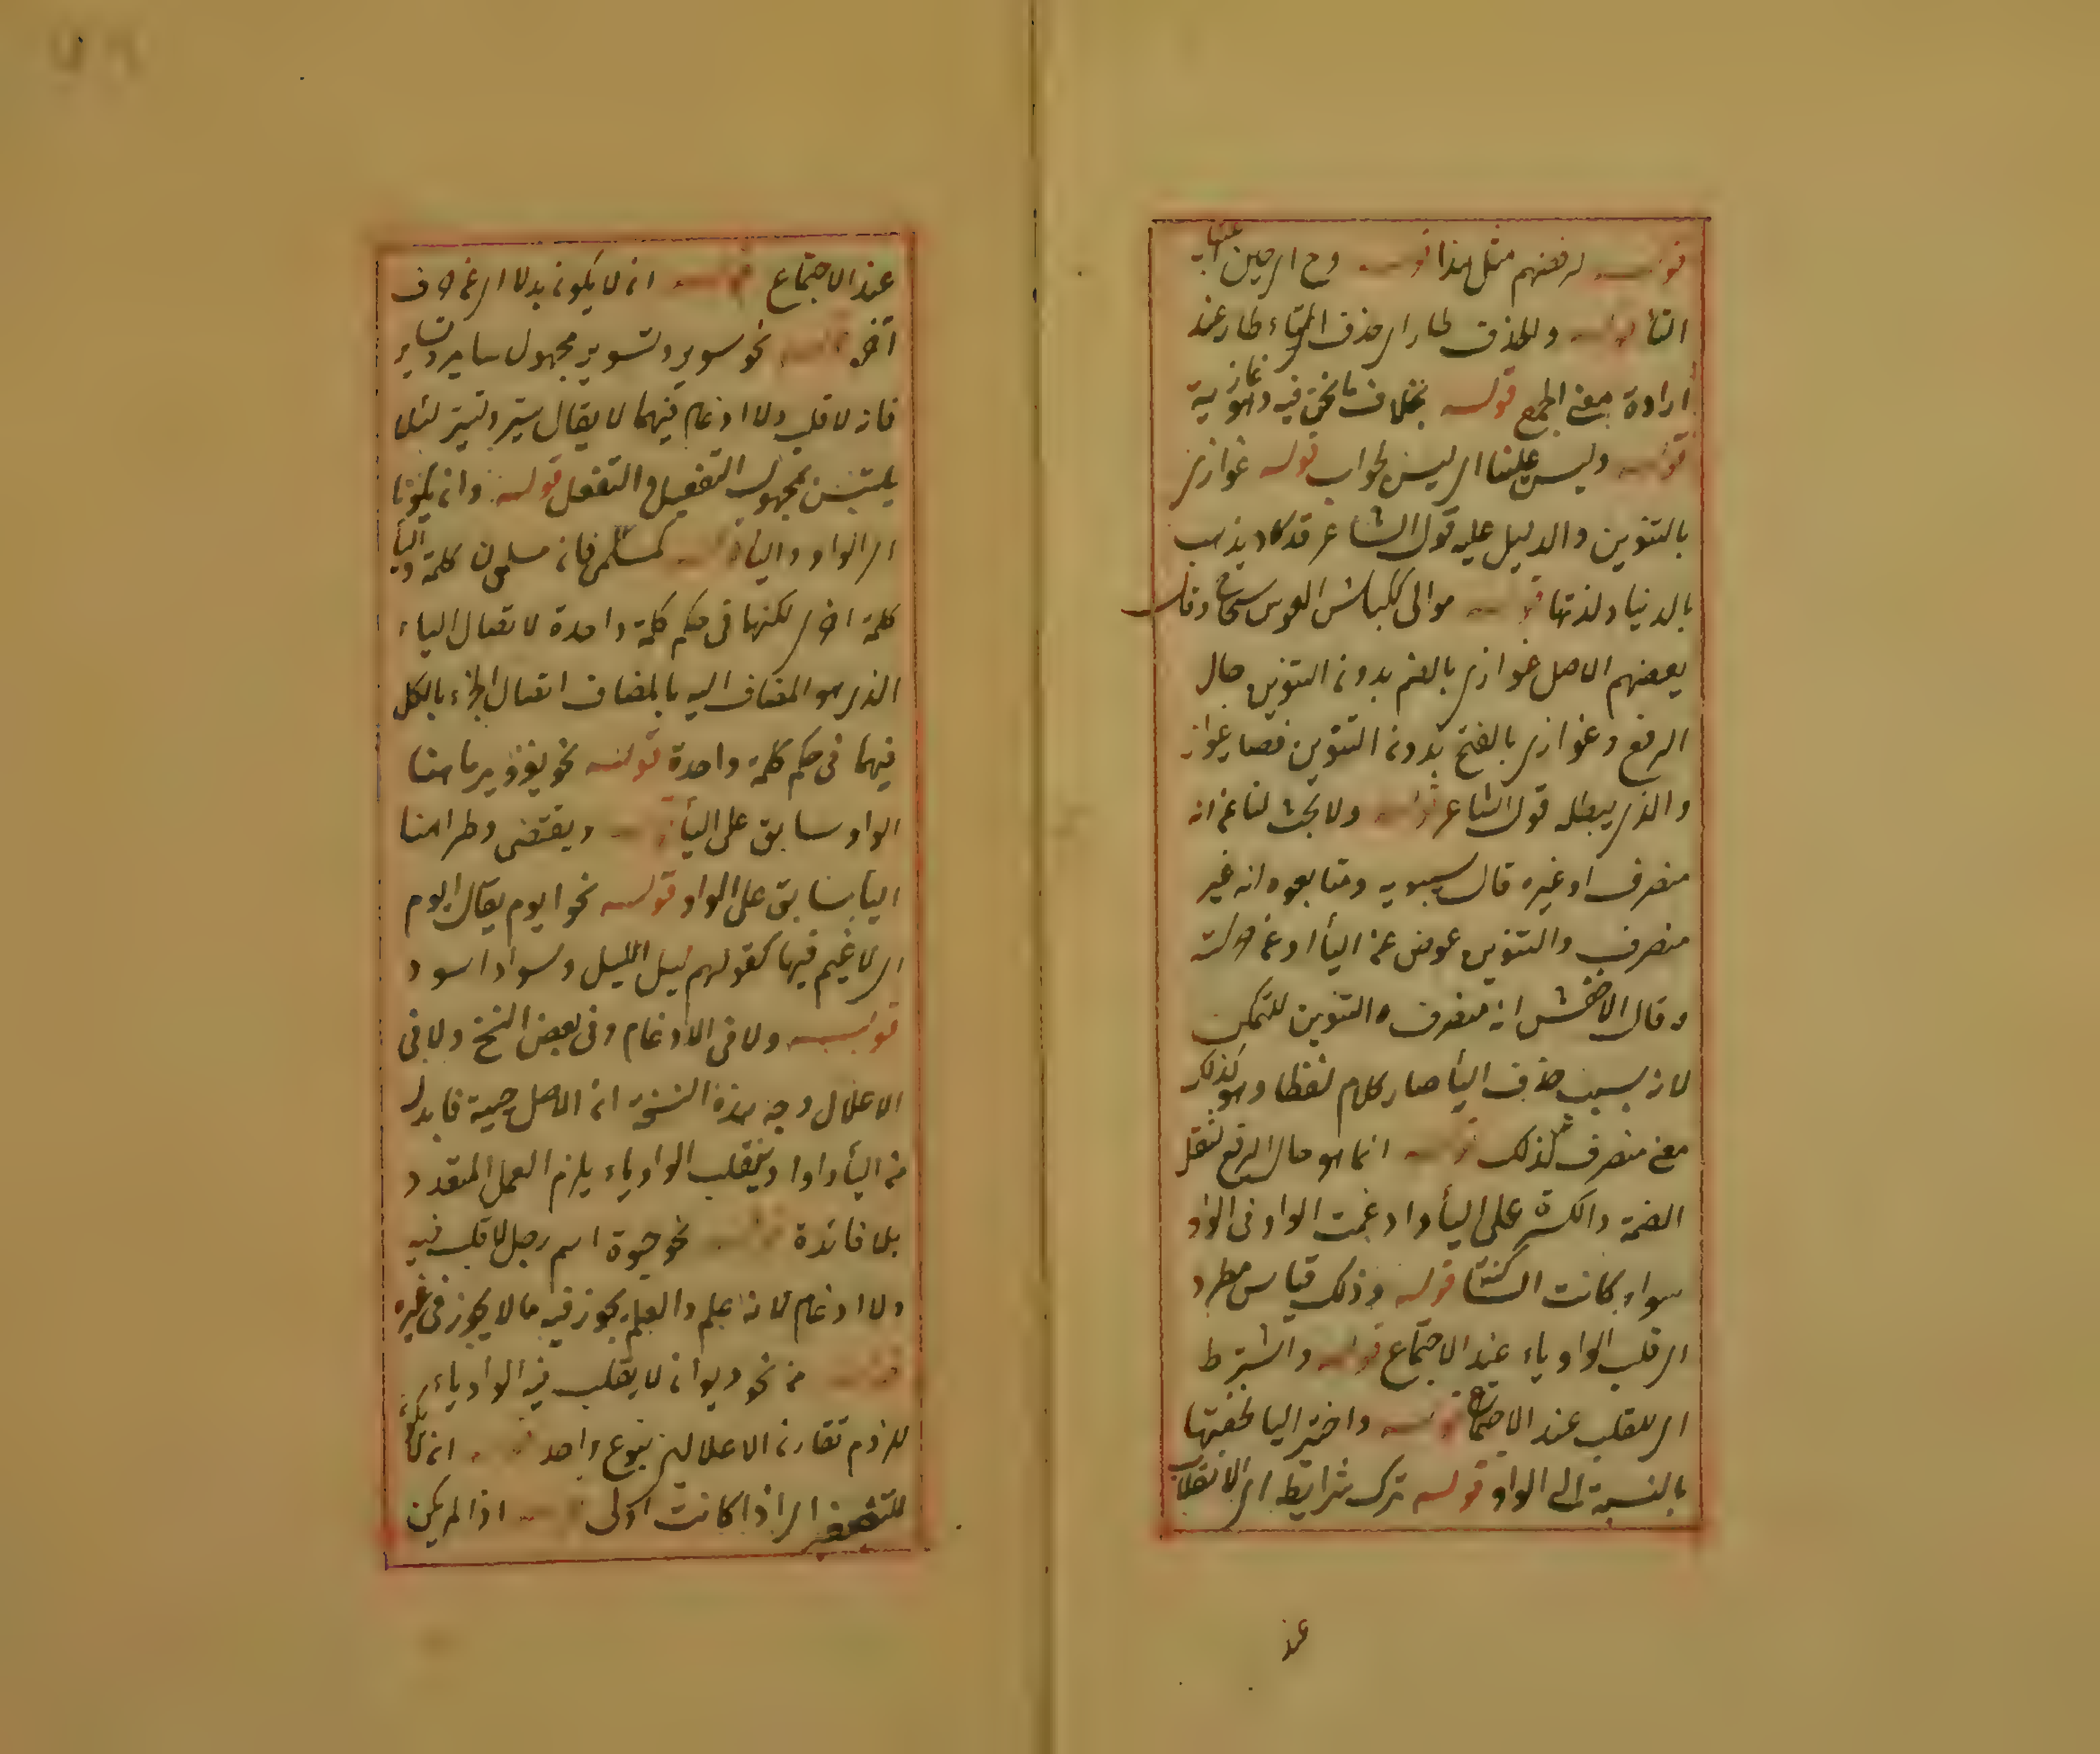 قوله لرفضهم مثل هذا قوله وح اي حين
التا قوله والحذف طار اي حذف التاء طار عند
ارادة معنى الجمع قوله بخلاف ما نحن فيه وهو غازية
قوله وليس علينا اي ليس بجواب قوله غوازي
بالتنوين والدليل عليه قول الشاعر قد كاد يذهب
بالدنيا ولذتها قوله موالى ككباش العوس سحاح وقال
بعضهم الاصل غوازي بالضم بدون التنوين حال
الرفع وغوازي بالفتح بدون التنوين فصار غواز
والذي يبطله قول الشاعر قوله ولا بحث لنا عن انه
منصرف او غيره قال سيبويه ومتابعوه انه غير
منصرف والتنوين عوض عن اليأ او عن حركته
وقال الاخفش انه منصرف والتنوين للتمكن
لانه بسبب حذف اليأ صار كلام لفظا وهو كذلك
معنى منصرف كذلك قوله انما هو حال الرفع لثقل
الضمة والكسرة على اليأ وادغمت الواو في الواو
سواء كانت الساكنة قوله وذلك قياس مطرد
اي قلب الواو ياء عند الاجتماع قوله واشترط
اي للقلب عند الاجتماع قوله واختير اليا لخفتها
بالنسبة الى الواو قوله ترك شرايط اي الانقلاب
عند
عند الاجتماع قوله ان لا يكون بدلا اي عن حرف
آخر قوله نحو سوير وتسوير مجهول ساير وتساير
فانه لا قلب ولا ادغام فيهما لا يقال سيّر وتسيّر لئلا
يلتبس بمجهول التفعيل والتفعل قوله وان يكونا
اي الواو واليأ قوله كمسلمى فانه مسلمون كلمة واليأ
كلمة اخرى لكنها في حكم كلمة واحدة لاتصال الياء
الذي هو المضاف اليه بالمضاف اتصال الجزء بالكل
فيهما في حكم كلمة واحدة قوله نحو يغزو يرما هنا
الواو سابق على اليأ قوله ويقتضى وطرا هنا
اليأ سابق على الواو قوله نحو ايوم يقال ايوم
اي لا غيم فيها كقولهم ليل الليل وسواد اسود
قوله ولا في الادغام وفي بعض النسخ ولا في
الاعلال وجه هذه النسخة ان الاصل حيية فابدل
من اليأ واوا وبقلب الواو ياء يلزم العمل المتعدد
بلا فائدة قوله نحو حيوة اسم رجل لا قلب فيه
ولا ادغام لانه علم والعلم يجوز فيه ما لا يجوز في غيره
قوله من نحو ديوان لا يقلب فيه الواو ياء
للزوم تقارن الاعلالين بنوع واحد قوله ان لا يكون
للتصغير اي اذا كانت اولى قوله اذا لم يكن